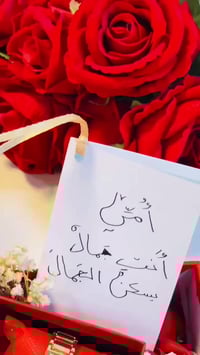 أُمّي
أنتِ جمالٌ
يسكنُ الجمال